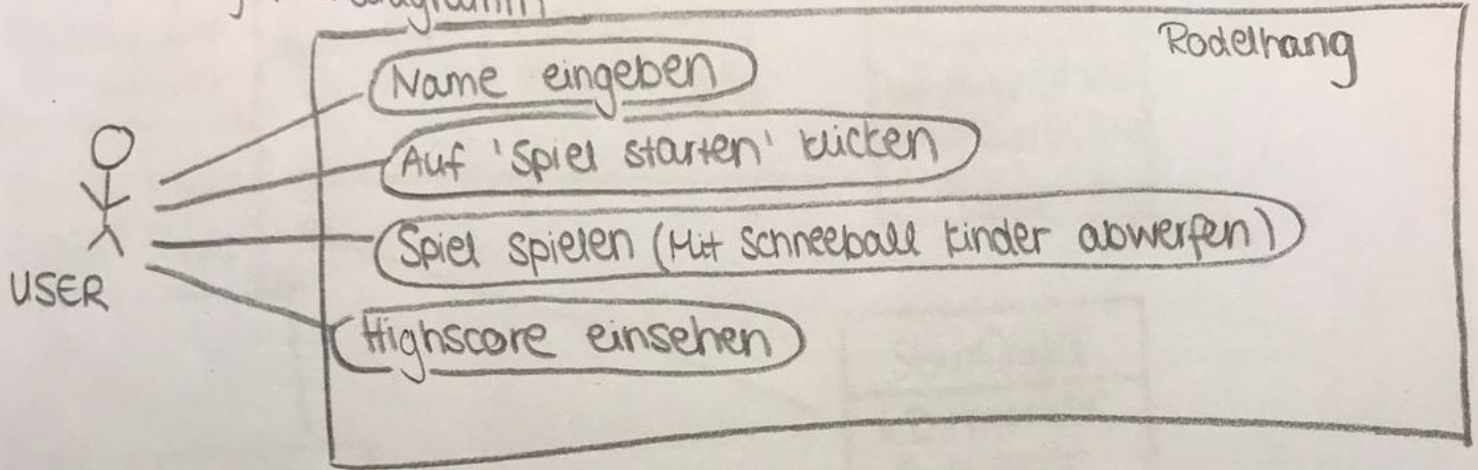 Rodelhang
Name eingeben
Auf 'Spiel starten' klicken
Spiel spielen (Mit Schneeball Kinder abwerfen)
USER
Highscore einsehen